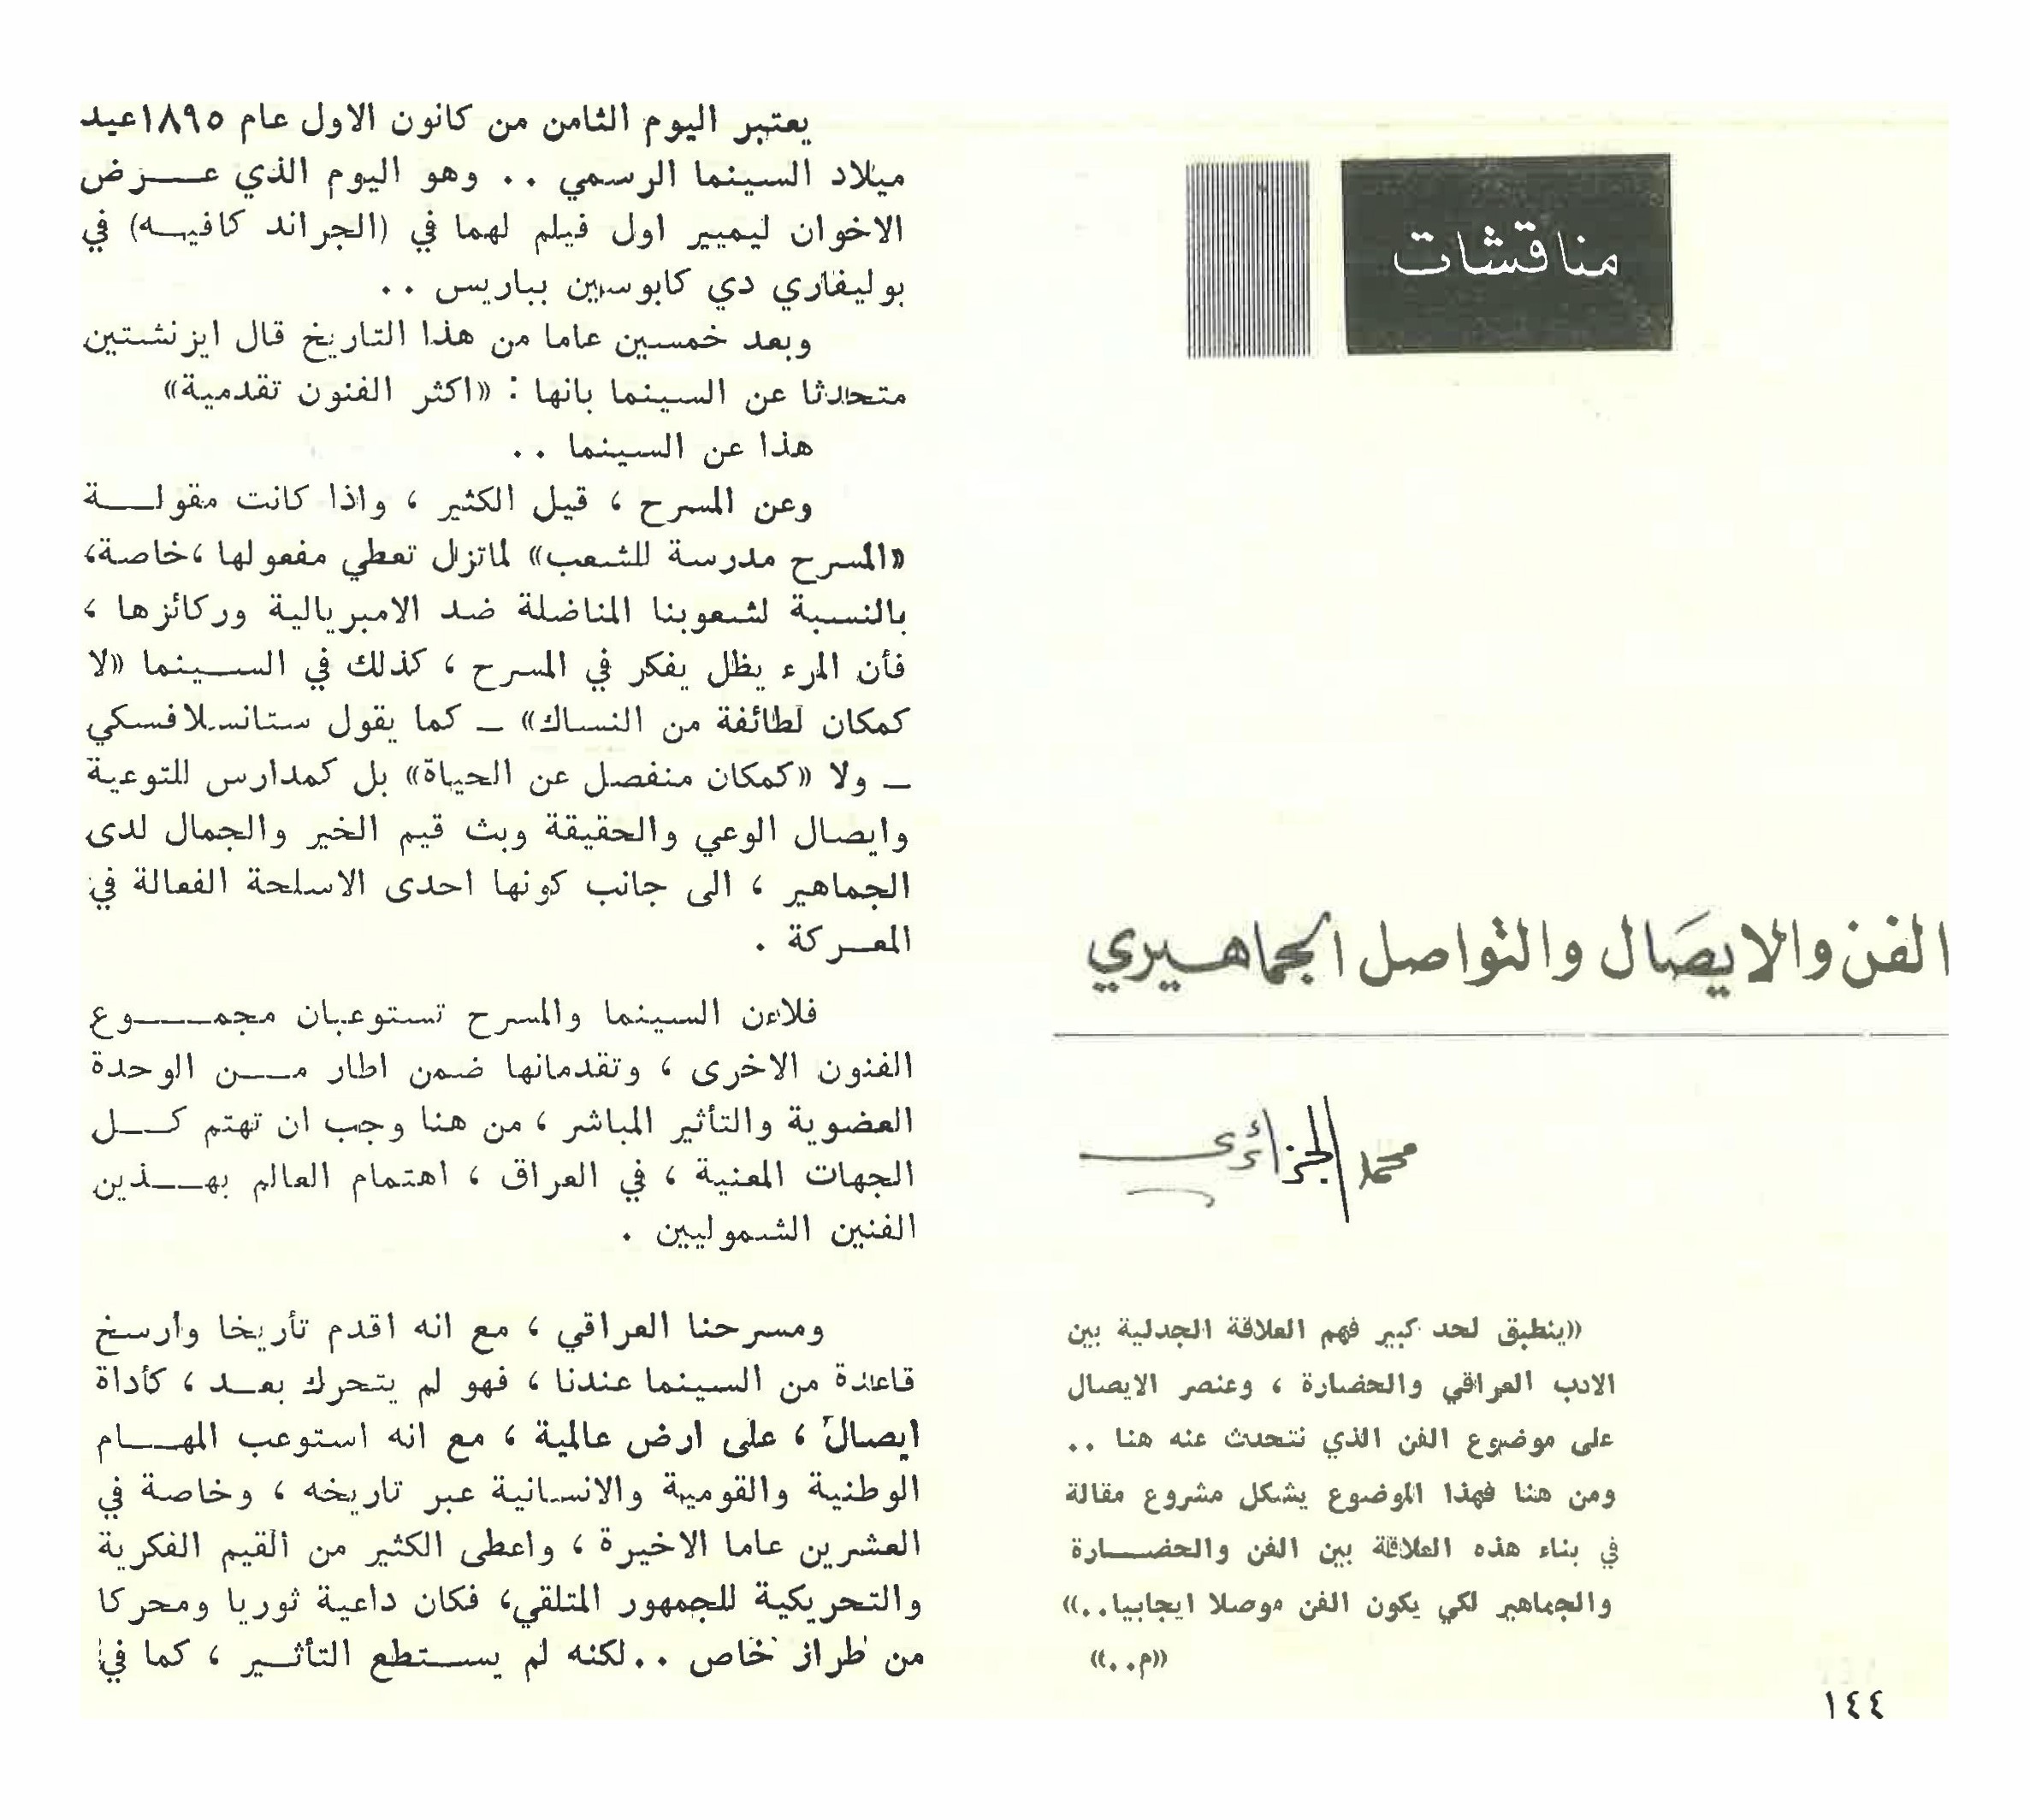 مناقشات
الفن والايصال والتواصل الجماهيري
محمد الجزائري
«ينطبق لحد كبير فهم العلاقة الجدلية بين
الادب العراقي والحضارة ، وعنصر الايصال
على موضوع الفن الذي نتحدث عنه هنا ..
ومن هنا فهذا الموضوع يشكل مشروع مقالة
في بناء هذه العلاقة بين الفن والحضارة
والجماهير لكي يكون الفن موصلا ايجابيا..»
«م..»
يعتبر اليوم الثامن من كانون الاول عام ١٨٩٥عيد
ميلاد السينما الرسمي .. وهو اليوم الذي عرض
الاخوان ليميير اول فيلم لهما في (الجراند كافيه) في
بوليفاري دي كابوسين بباريس ..
وبعد خمسين عاما من هذا التاريخ قال ايزنشتين
متحدثا عن السينما بانها : «اكثر الفنون تقدمية»
هذا عن السينما ..
وعن المسرح ، قيل الكثير ، واذا كانت مقولة
«المسرح مدرسة للشعب» لماتزال تعطي مفعولها ،خاصة،
بالنسبة لشعوبنا المناضلة ضد الامبريالية وركائزها ،
فأن المرء يظل يفكر في المسرح ، كذلك في السينما «لا
كمكان لطائفة من النساك» – كما يقول ستانسلافسكي
– ولا «كمكان منفصل عن الحياة» بل كمدارس للتوعية
وايصال الوعي والحقيقة وبث قيم الخير والجمال لدى
الجماهير ، الى جانب كونها احدى الاسلحة الفعالة في
المعركة .
فلاءن السينما والمسرح تستوعبان مجموع
الفنون الاخرى ، وتقدمانها ضمن اطار من الوحدة
العضوية والتأثير المباشر ، من هنا وجب ان تهتم كل
الجهات المعنية ، في العراق ، اهتمام العالم بهذين
الفنين الشموليين .
ومسرحنا العراقي ، مع انه اقدم تأريخا وارسخ
قاعدة من السينما عندنا ، فهو لم يتحرك بعد ، كأداة
ايصال ، على ارض عالمية ، مع انه استوعب المهام
الوطنية والقومية والانسانية عبر تاريخه ، وخاصة في
العشرين عاما الاخيرة ، واعطى الكثير من القيم الفكرية
والتحريكية للجمهور المتلقي، فكان داعية ثوريا ومحركا
من طراز خاص ..لكنه لم يستطع التأثير ، كما في
١٤٤